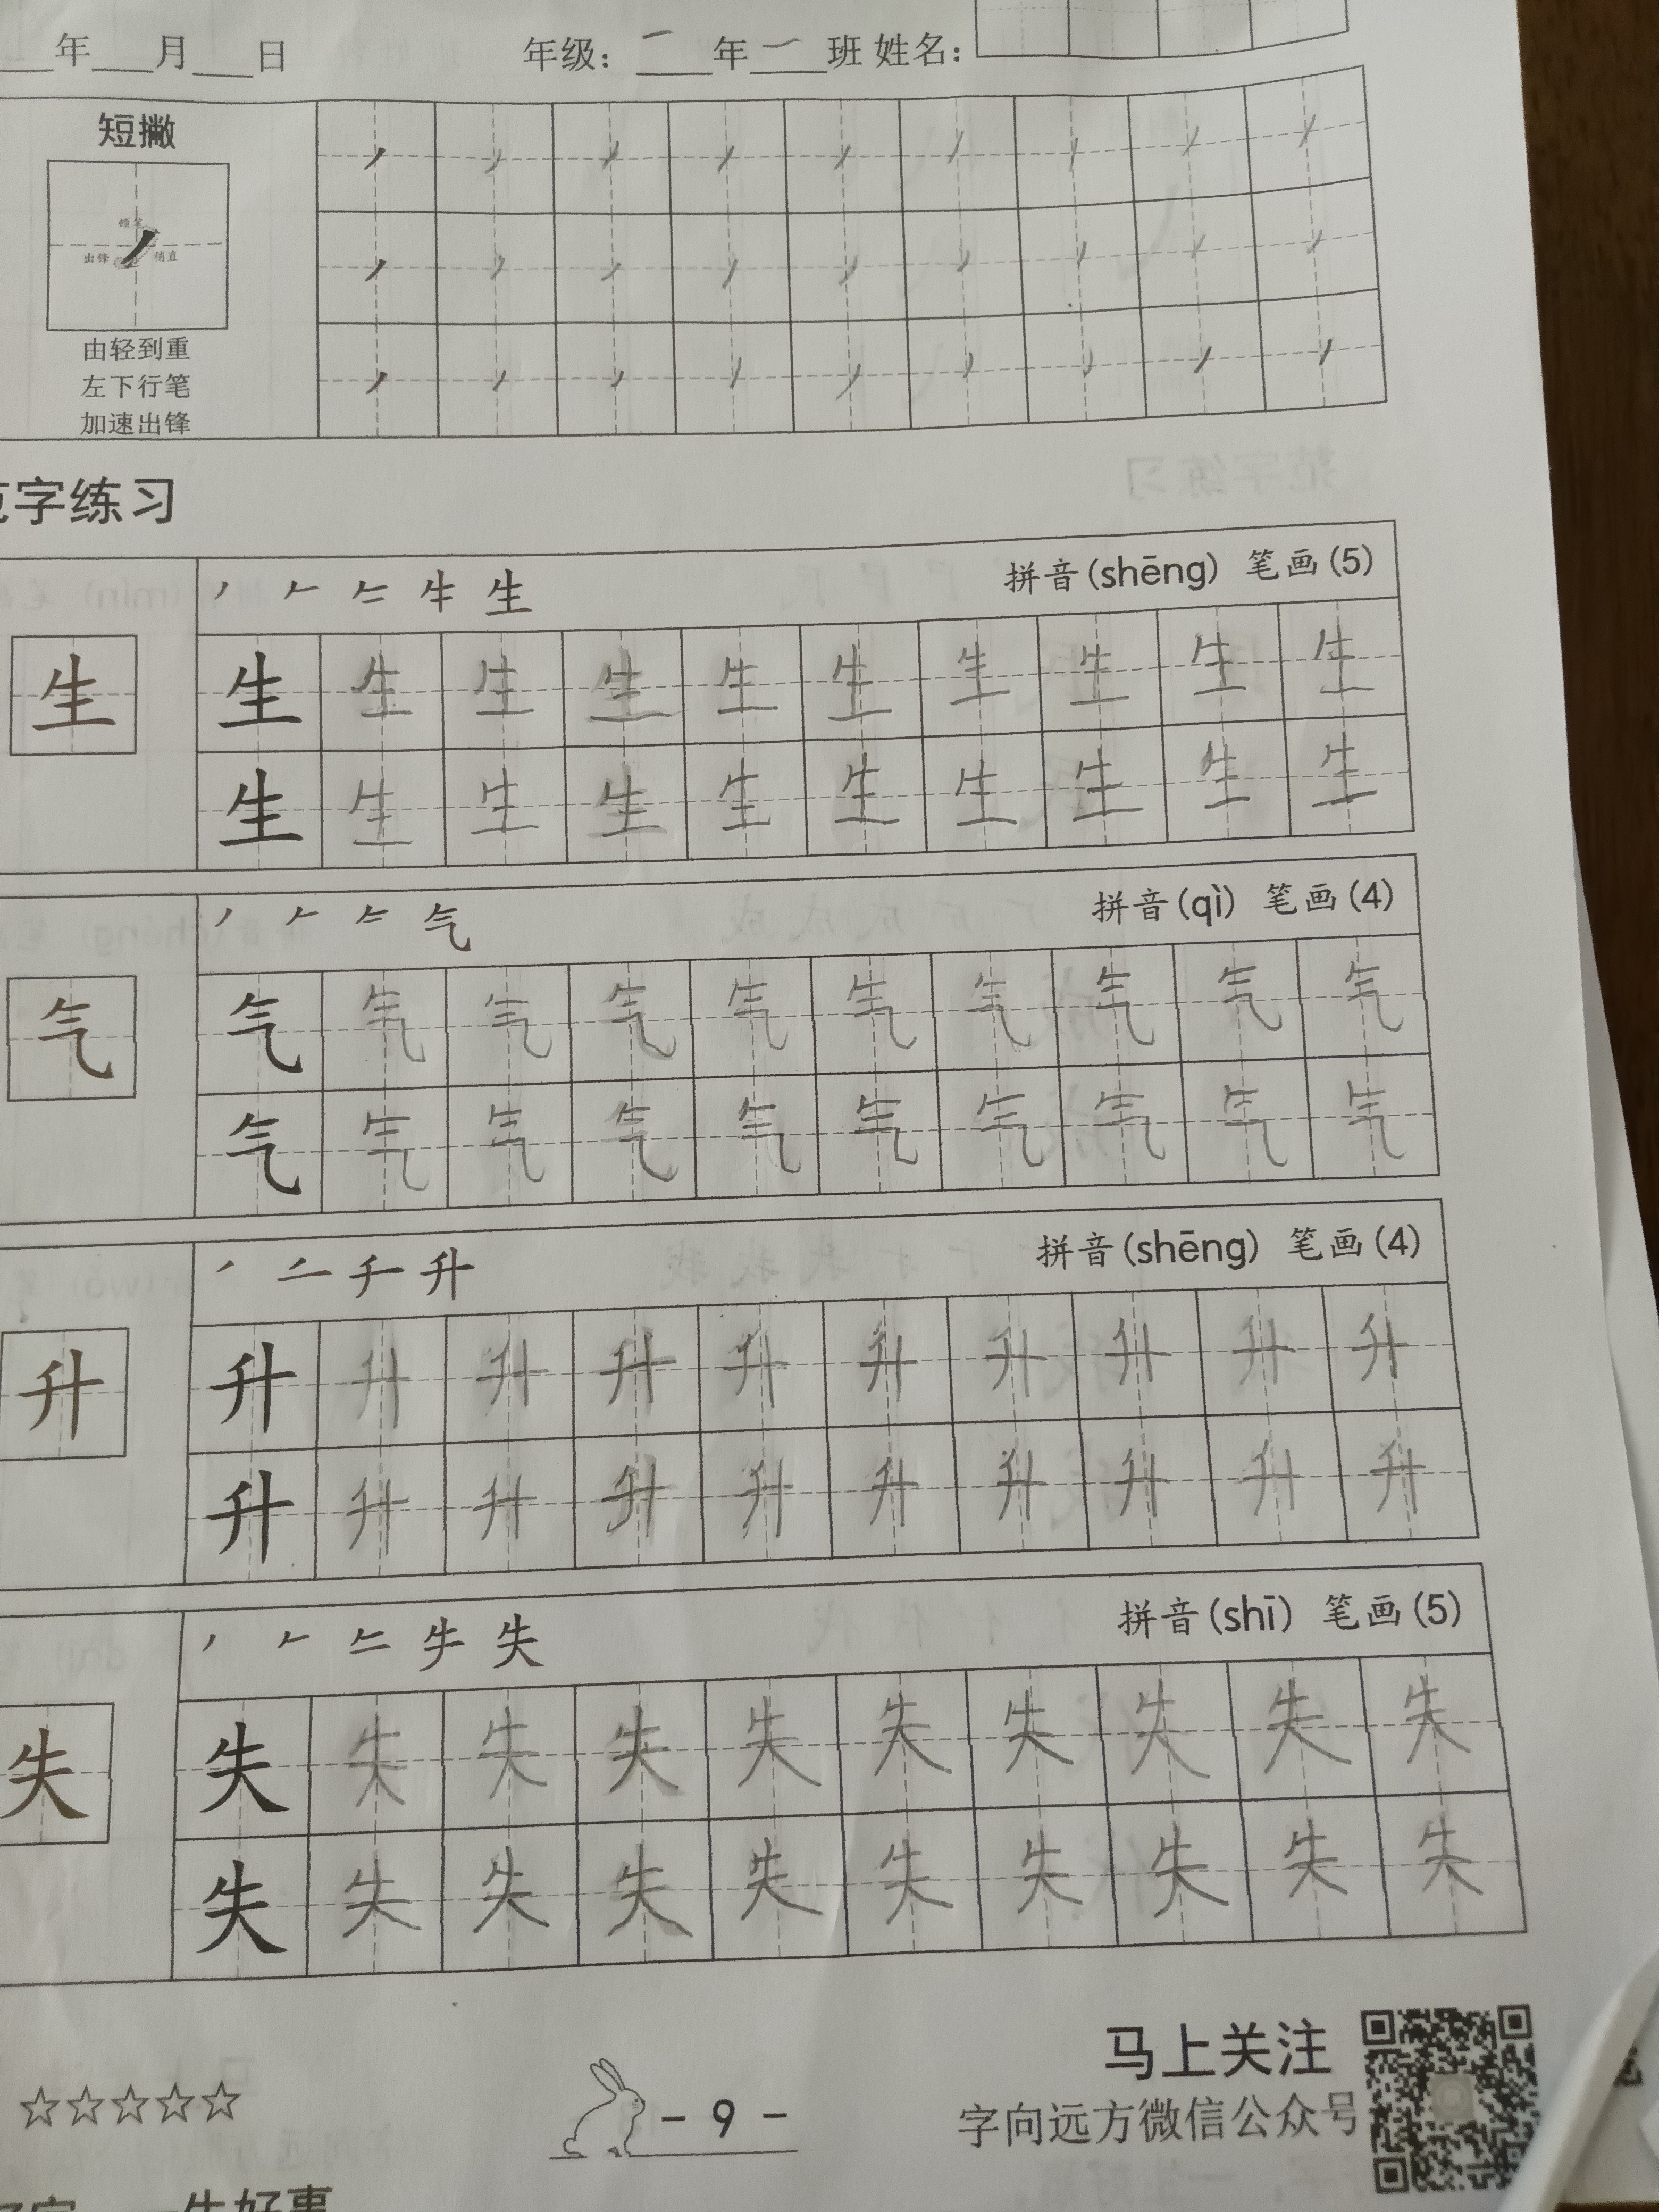 年 月 日 年级：一年一班 姓名：
短撇
顿笔
出锋 稍直
由轻到重
左下行笔
加速出锋
范字练习
生 拼音(shēng) 笔画(5)
生 生 生 生 生 生 生 生 生 生 生
生 生 生 生 生 生 生 生 生 生
气 拼音(qì) 笔画(4)
气 气 气 气 气 气 气 气 气 气 气
气 气 气 气 气 气 气 气 气 气
升 拼音(shēng) 笔画(4)
升 升 升 升 升 升 升 升 升 升 升
升 升 升 升 升 升 升 升 升 升
失 拼音(shī) 笔画(5)
失 失 失 失 失 失 失 失 失 失 失
失 失 失 失 失 失 失 失 失 失
马上关注
☆☆☆☆☆ - 9 - 字向远方微信公众号
一生好事